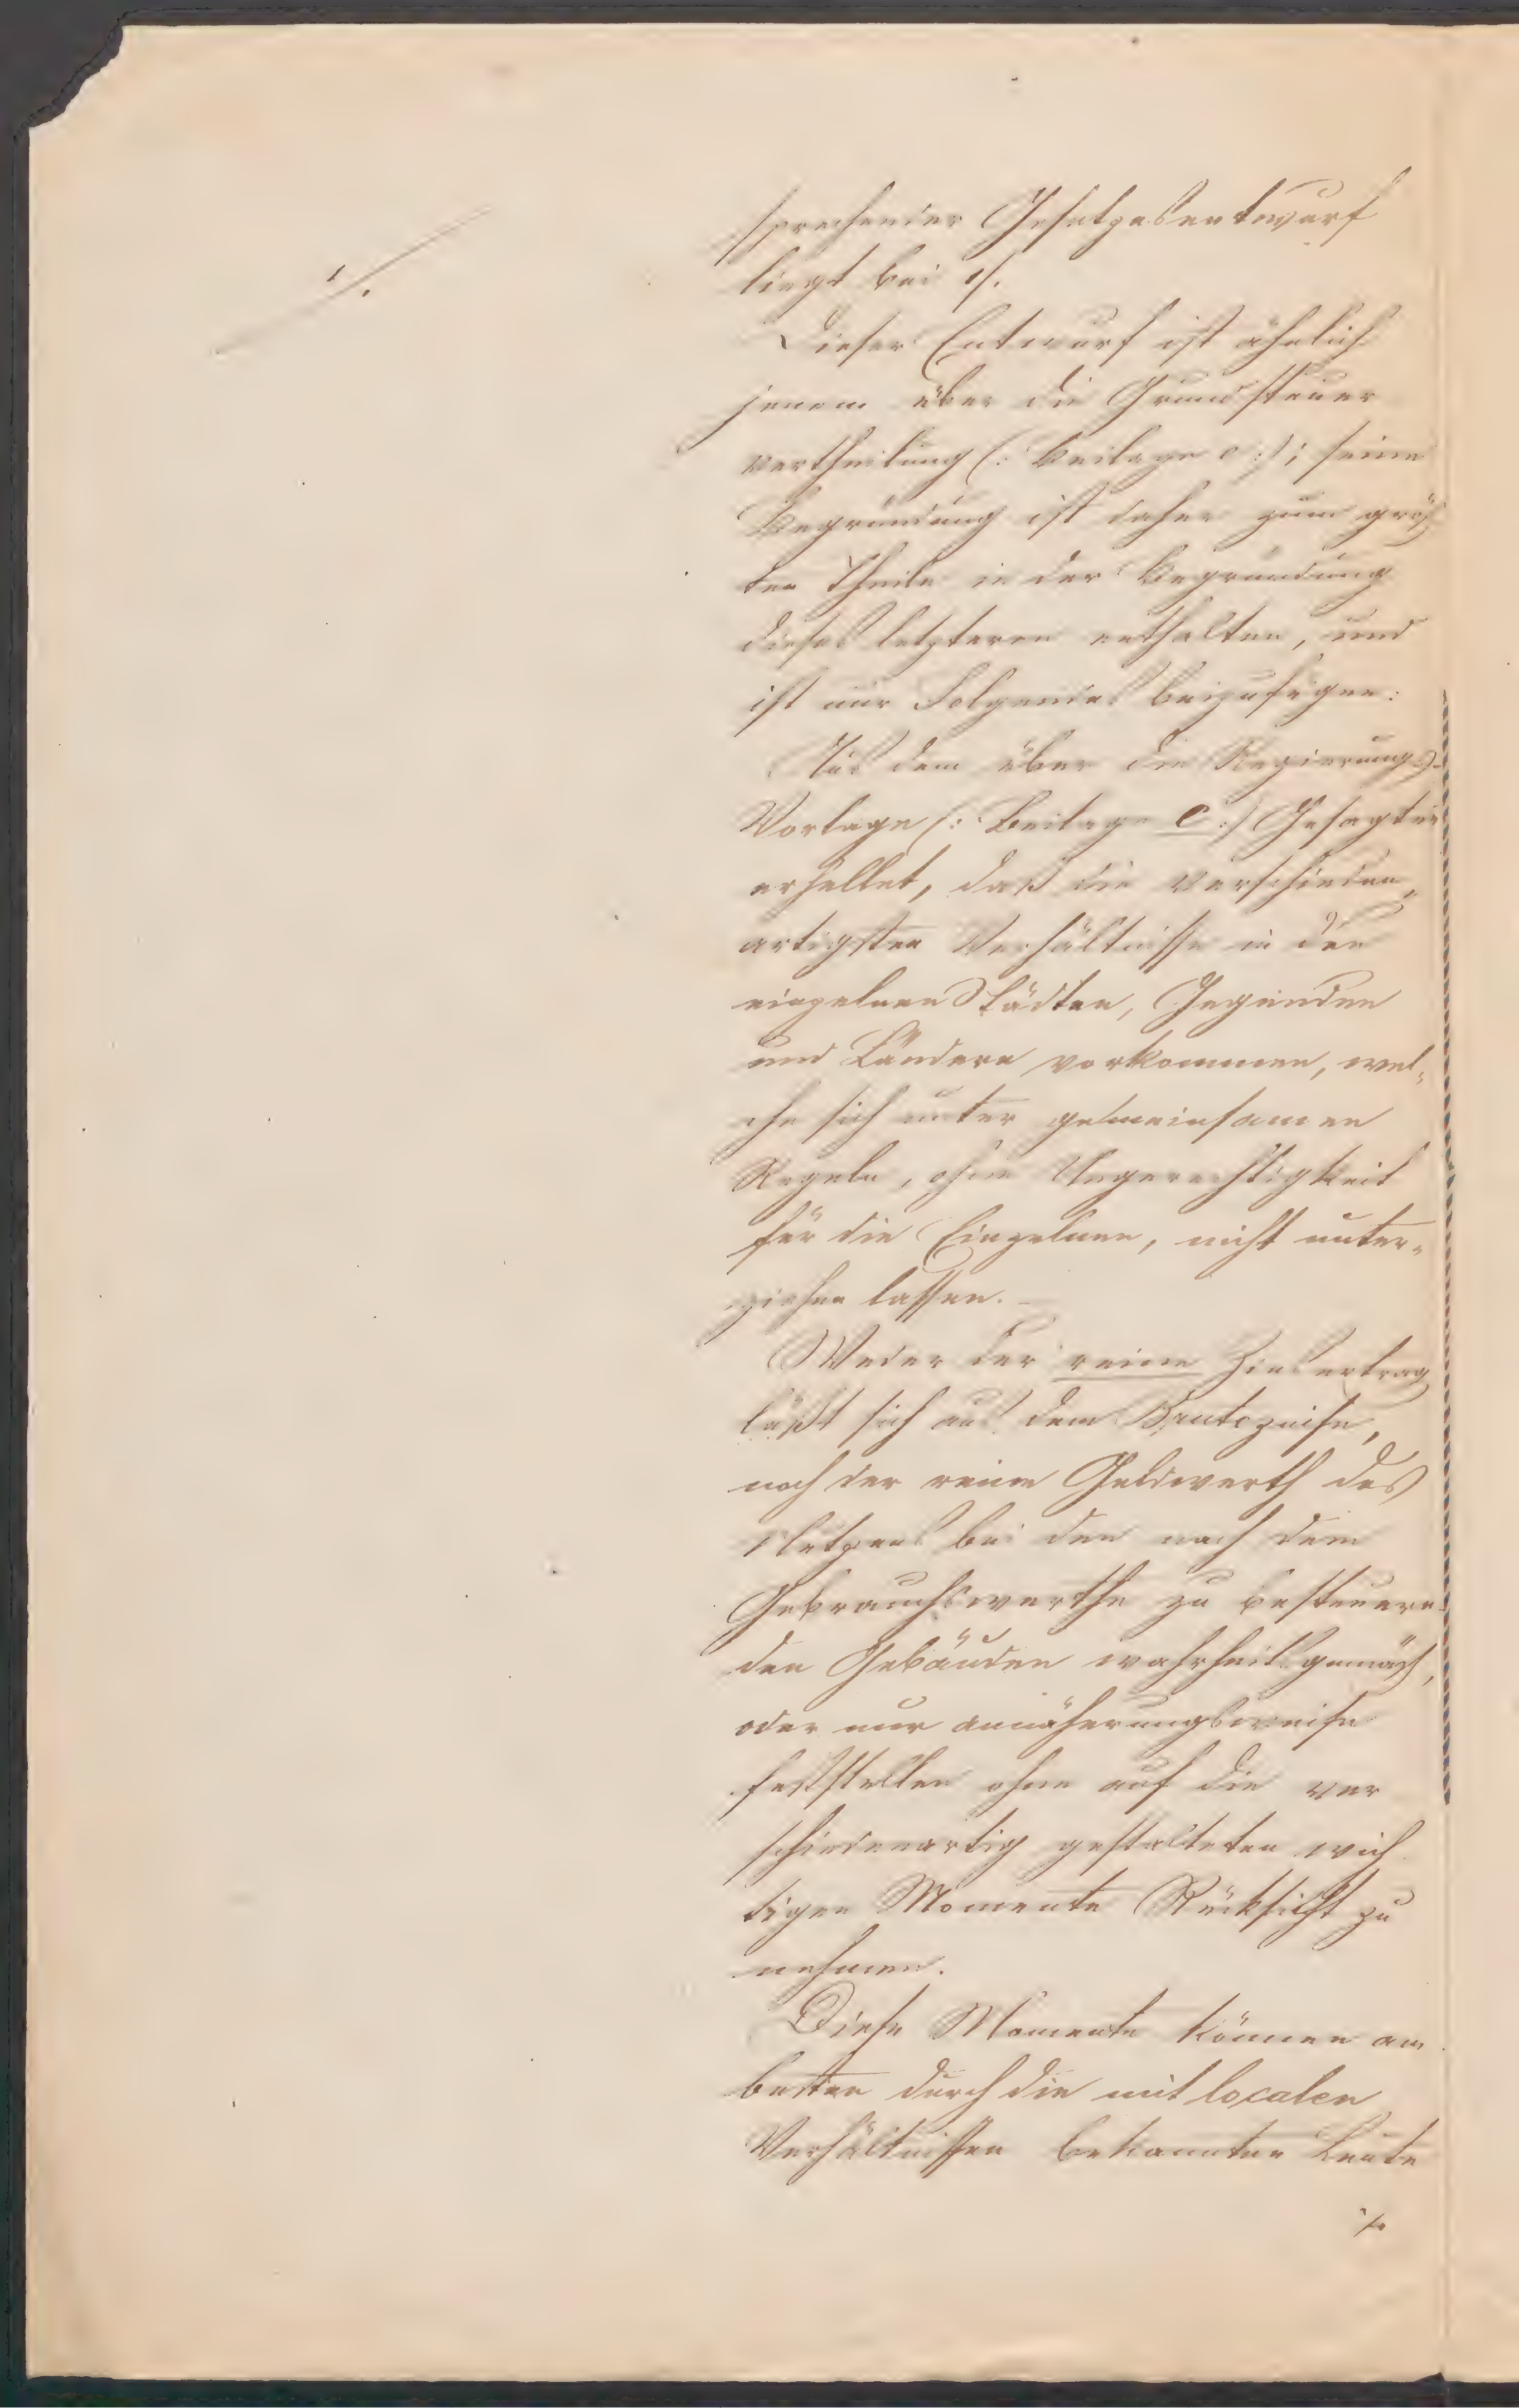 1/.
sprechender Gesetzesentwurf
liegt bei 1/.
Dieser Entwurf ist ähnlich
jenem über die Grundsteuer
vertheilung (: Beilage e :); seine
Begründung ist daher zum größ
ten Theile in der Begründung
dieses letzteren enthalten, und
ist nur Folgendes beizufügen:
Aus dem über die Regierungs-
Vorlage (: Beilage C :) Gesagten
erhellet, daß die verschieden„
artigsten Verhältnisse in den
einzelnen Städten, Gegenden
und Ländern vorkommen, wel„
che sich unter gemeinsamen
Regeln, ohne Ungerechtigkeit
für die Einzelnen, nicht unter„
ziehen lassen. –
Weder der reine Zinsertrag
läßt sich aus dem Brutozinse,
noch der reine Geldwerth des
Nutzens bei den nach dem
Gebrauchswerthe zu besteuern-
den Gebäuden wahrheitsgemäß,
oder nur annäherungsweise
feststellen ohne auf die ver
schiedenartig gestalteten wich
tigen Momente Rücksicht zu
nehmen.
Diese Momente können am
besten durch die mit localen
Verhältnissen bekannten Leute
./.